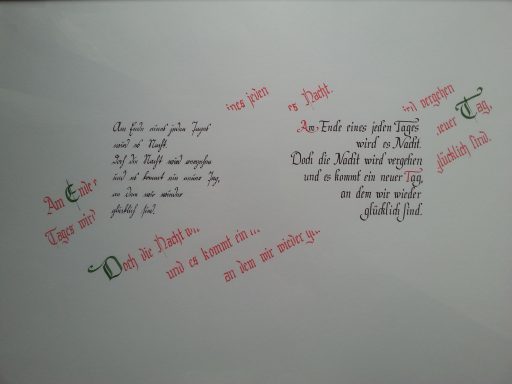 Am Ende e
ines jeden
Tages wird
es Nacht.
Doch die Nacht w
ird vergehen
und es kommt ein
neuer Tag,
an dem wir wieder
glücklich sind.
Am Ende eines jeden Tages
wird es Nacht.
Doch die Nacht wird vergehen
und es kommt ein neuer Tag,
an dem wir wieder
glücklich sind.
Am Ende eines jeden Tages
wird es Nacht.
Doch die Nacht wird vergehen
und es kommt ein neuer Tag,
an dem wir wieder
glücklich sind.